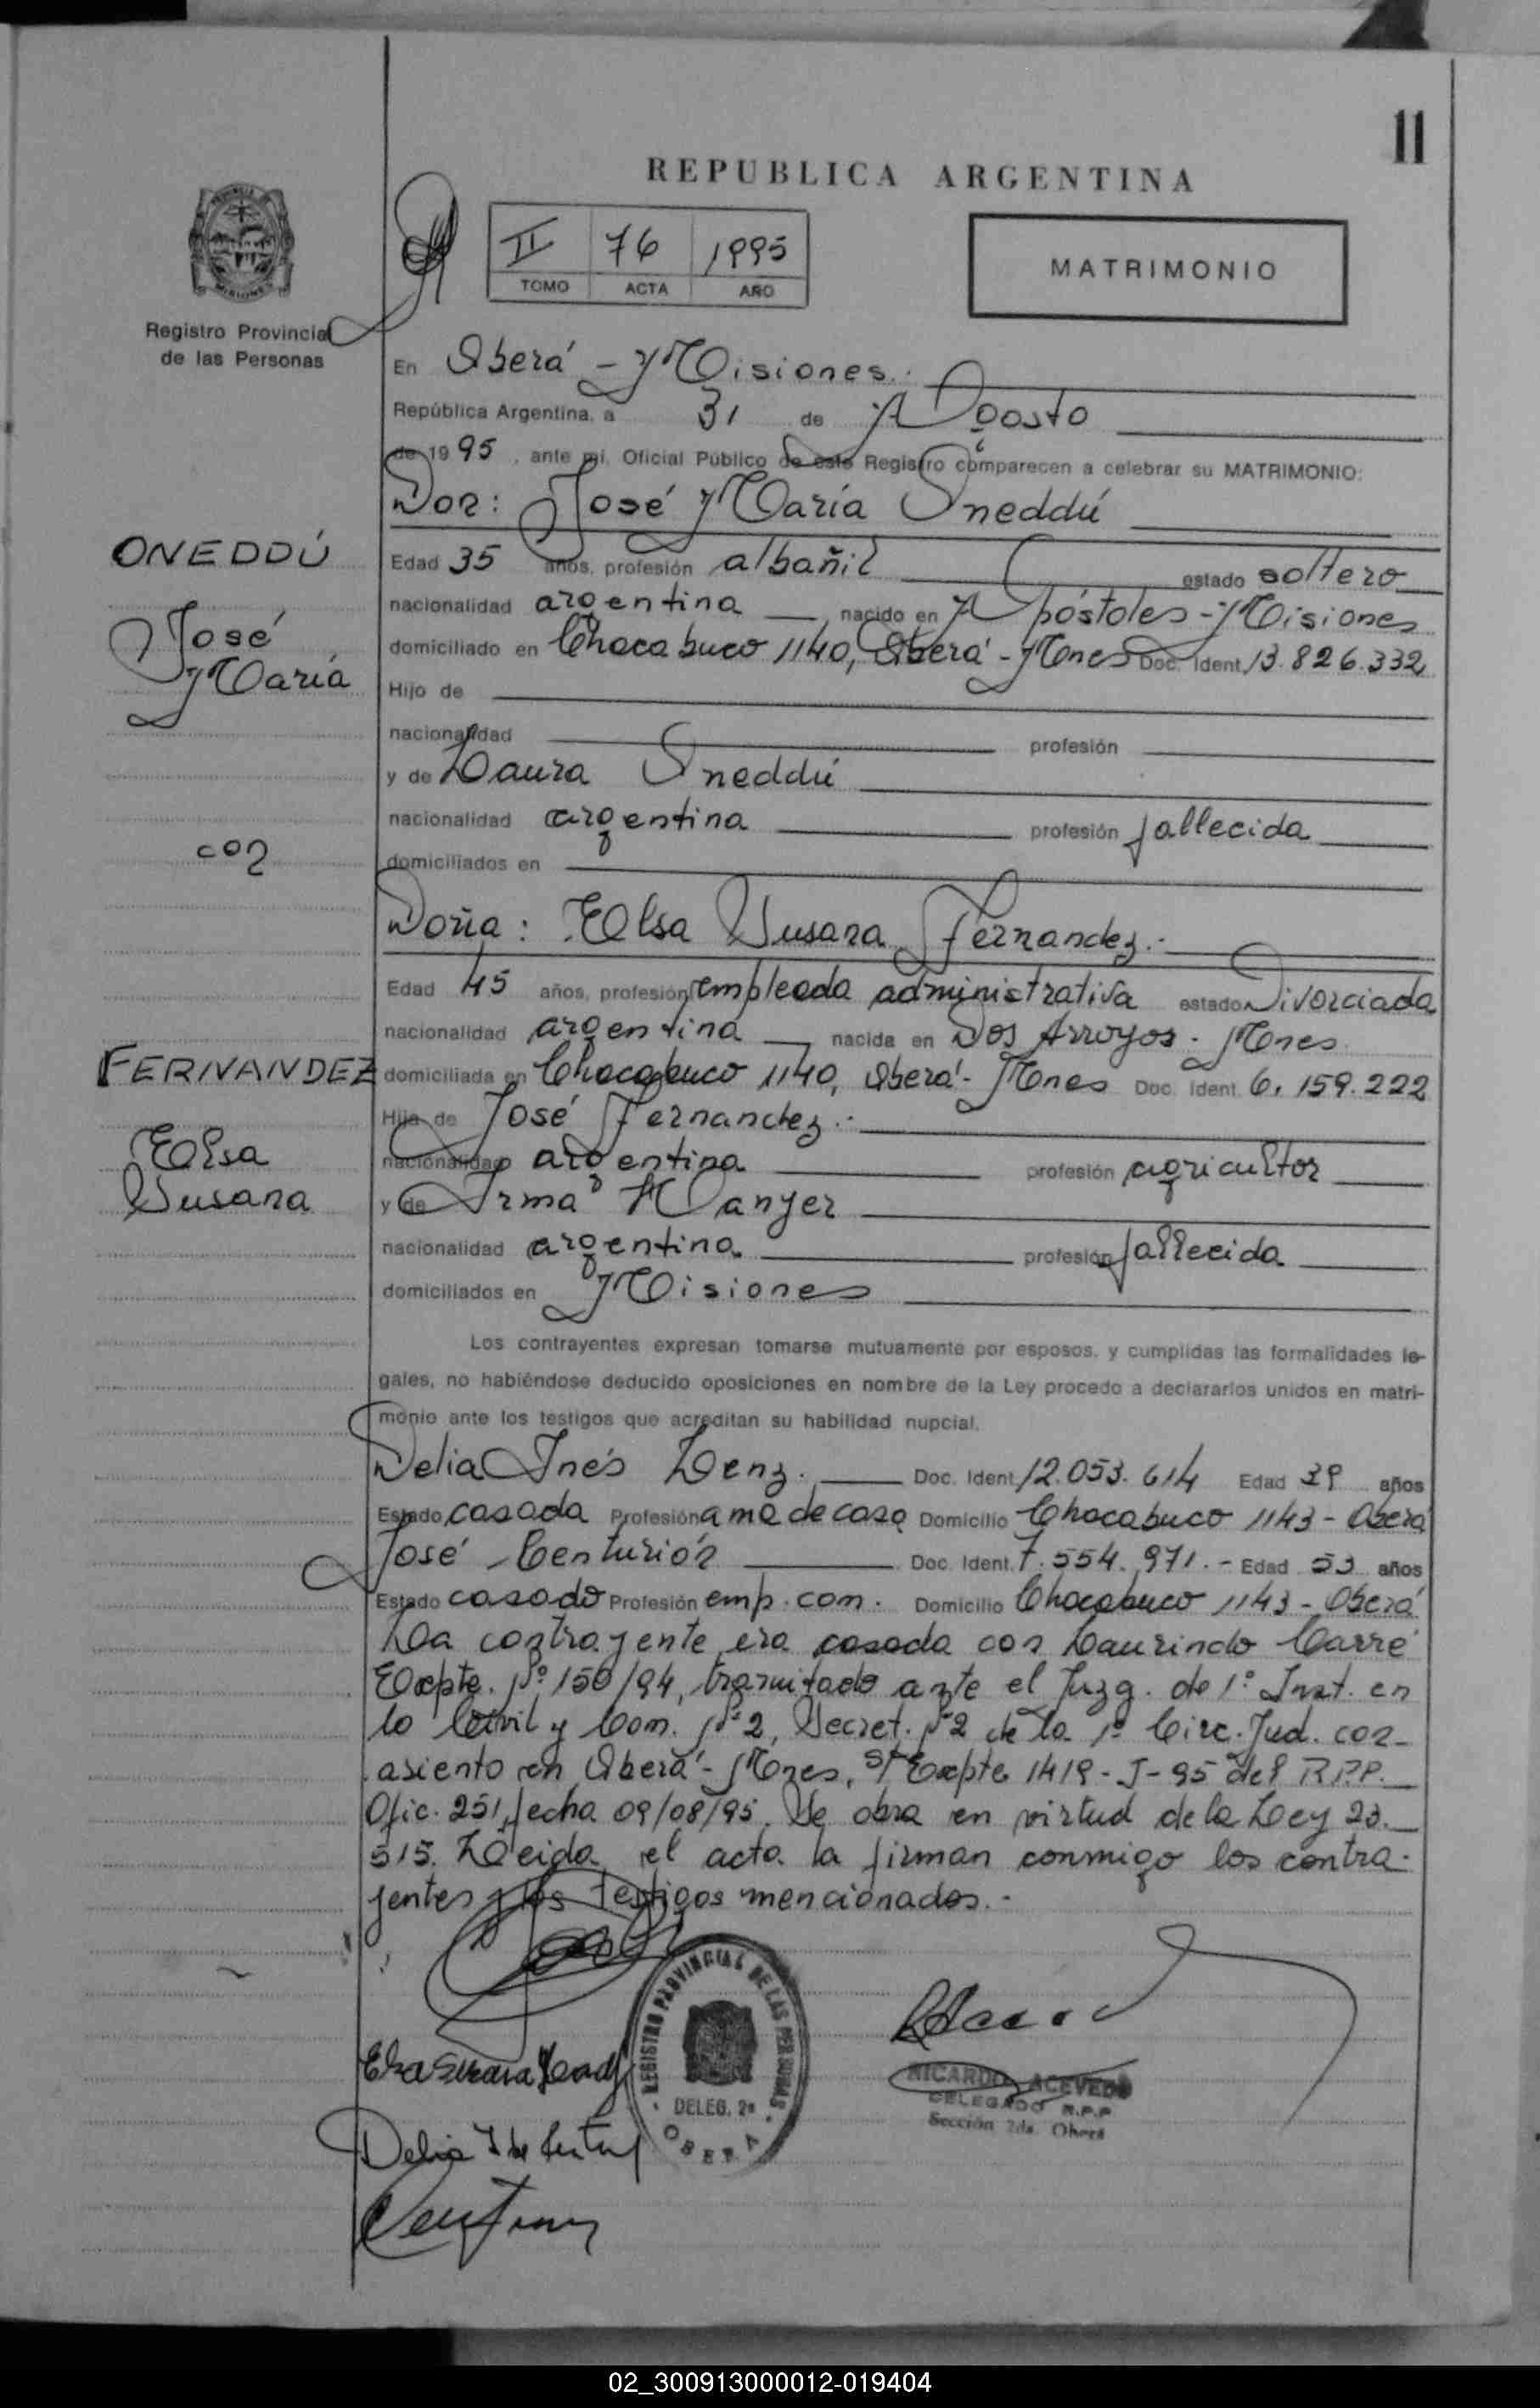 11
REPUBLICA ARGENTINA
II 76 1995
TOMO ACTA AÑO
MATRIMONIO
Registro Provincial
de las Personas
En Oberá - Misiones.-
República Argentina, a 31 de Agosto
de 1995, ante mi, Oficial Público de este Registro comparecen a celebrar su MATRIMONIO:
Don: José María Oneddú
ONEDDÚ
José
María
con
FERNANDEZ
Elsa
Susana
Edad 35 años, profesión albañil estado soltero
nacionalidad argentina nacido en Apóstoles - Misiones
domiciliado en Chacabuco 1140, Oberá - Mnes Doc. Ident. 13.826.332
Hijo de
nacionalidad profesión
y de Laura Oneddú
nacionalidad argentina profesión fallecida
domiciliados en
Doña: Elsa Susana Fernandez.-
Edad 45 años, profesión empleada administrativa estado Divorciada
nacionalidad argentina nacida en Dos Arroyos - Mnes
domiciliada en Chacabuco 1140, Oberá - Mnes Doc. Ident. 6.159.222
Hija de José Fernandez.-
nacionalidad argentina profesión agricultor
y de Irma
nacionalidad argentina profesión fallecida
domiciliados en Misiones
Los contrayentes expresan tomarse mutuamente por esposos, y cumplidas las formalidades le-
gales, no habiéndose deducido oposiciones en nombre de la Ley procedo a declararlos unidos en matri-
monio ante los testigos que acreditan su habilidad nupcial.
Delia Inés Lenz. Doc. Ident. 12.053.614 Edad 39 años
Estado casada Profesión ama de casa Domicilio Chacabuco 1143 - Oberá
José Centurión Doc. Ident. 7.554.971.- Edad 53 años
Estado casado Profesión emp. com. Domicilio Chacabuco 1143 - Oberá
La contrayente era casada con Laurindo Carré
Expte. Nº 150/94, tramitado ante el Juzg. de 1º Inst. en
lo Civil y Com. Nº 2, Secret. Nº 2 de la 1º Circ. Jud. con
asiento en Oberá - Mnes, s/ Expte 1419-J-95 del R.P.P.
Ofic. 251, fecha 09/08/95. Se obra en virtud de la Ley 23.
515. Leida el acta la firman conmigo los contra-
yentes y los testigos mencionados.-
REGISTRO PROVINCIAL DE LAS PERSONAS
DELEG. 2ª
OBERA
RICARDO ACEVEDO
DELEGADO R.P.P
Sección 2da. Oberá
02_300913000012-019404